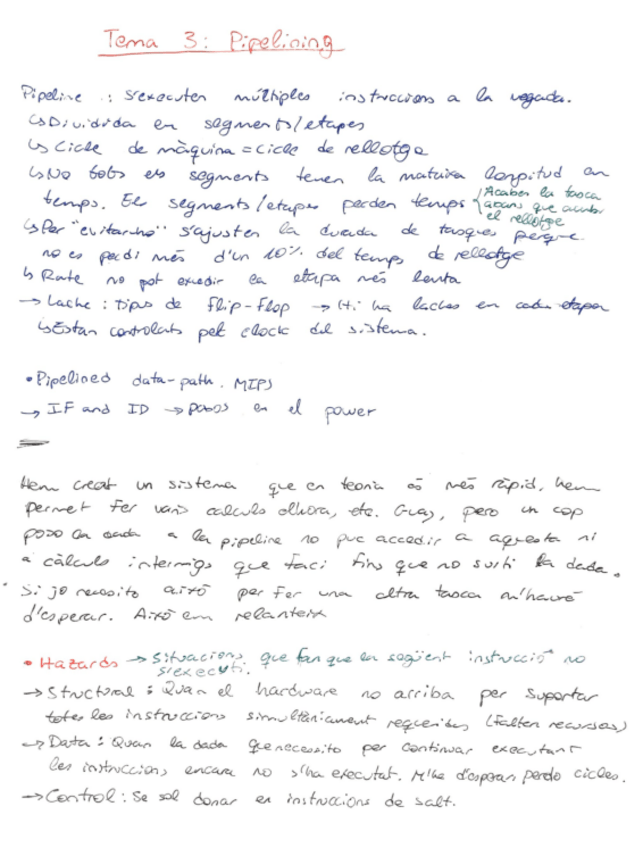 Tema 3: Pipelining
Pipeline : S'executen múltiples instruccions a la vegada.
↳ Dividida en segments/etapes
↳ Cicle de màquina = cicle de rellotge
↳ No tots els segments tenen la mateixa longitud en
temps. Els segments/etapes perden temps
Acaben la tasca
abans que acabi
el rellotge
↳ Per "evitarho" s'ajusten la durada de tasques perque
no es perdi més d'un 10% del temps de rellotge
↳ Rate no pot excedir la etapa més lenta
→ Lache : tipus de flip-flop → Hi ha laches en cada etapa
↳ Estan controlats pel clock del sistema.
• Pipelined data-path. MIPS
→ IF and ID → pasos en el power
Hem creat un sistema que en teoria és més ràpid, hem
permet fer varis calculs alhora, etc. Guay, pero un cop
poso la dada a la pipeline no puc accedir a aquesta ni
a càlculs intermigs que faci fins que no surti la dada.
Si jo necesito aixó per fer una altra tasca m'hauré
d'esperar. Aixó em relanteix
• Hazards → Situacions que fan que la següent instrucció no
s'executi.
→ Structural : Quan el hardware no arriba per suportar
totes les instruccions simultàniament requerides (falten recursos)
→ Data : Quan la dada que necessito per continuar executant
les instruccions encara no s'ha executat. M'he d'esperar, perdo cicles.
→ Control : Se sol donar en instruccions de salt.